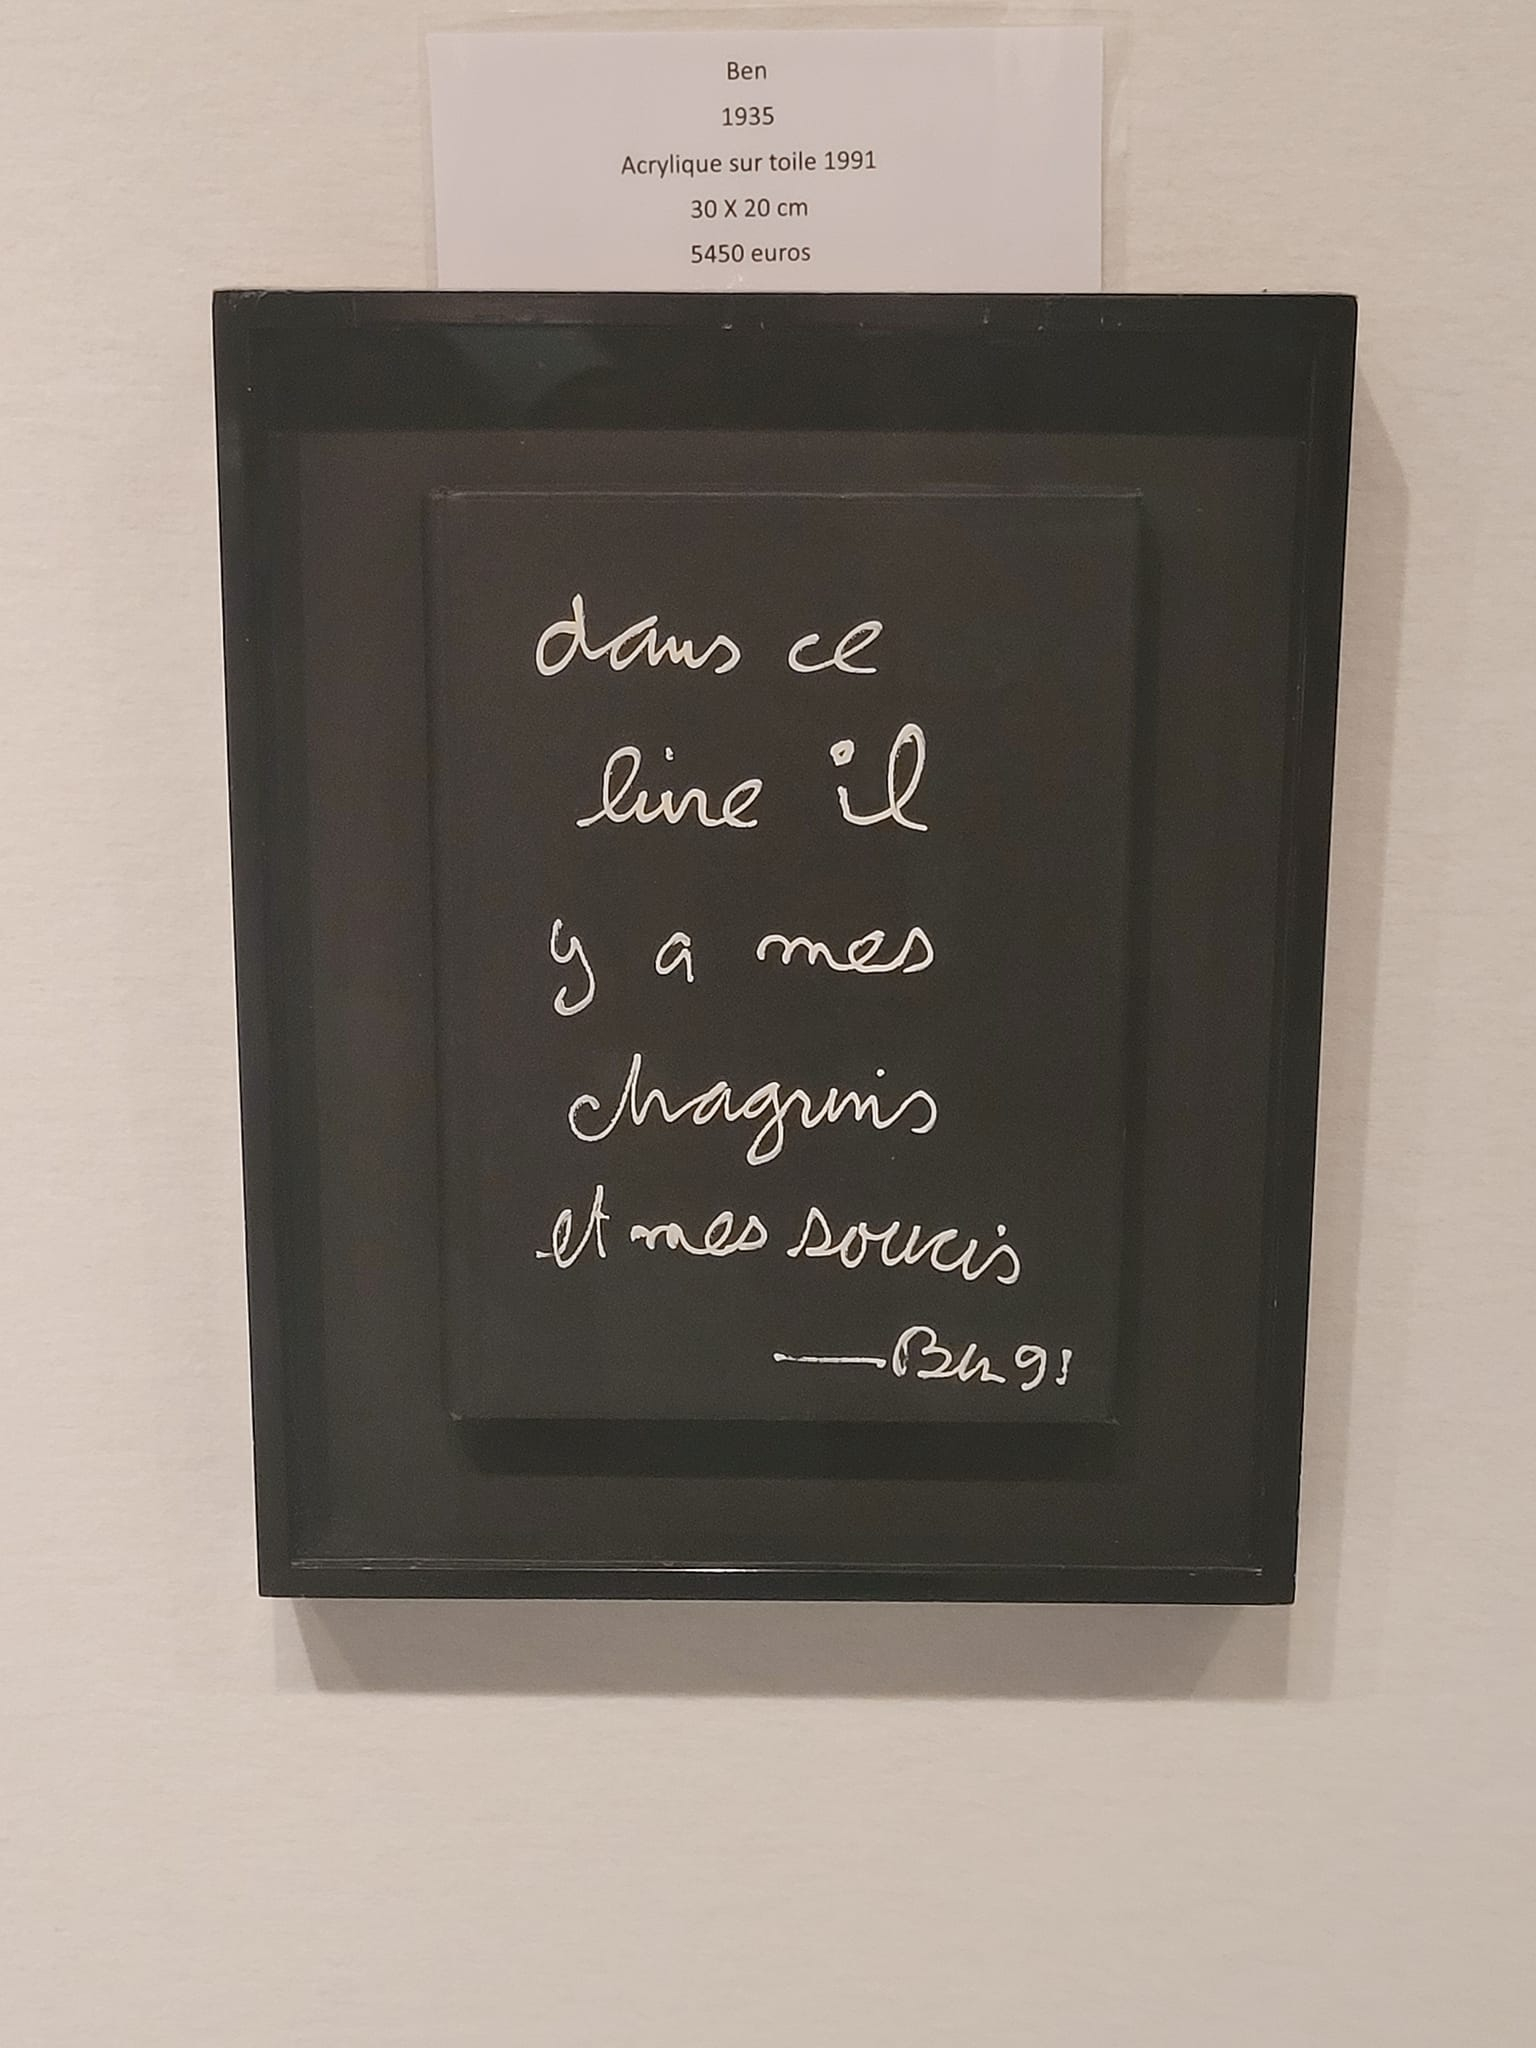 Ben
1935
Acrylique sur toile 1991
30 X 20 cm
5450 euros
dans ce
livre il
y a mes
chagrins
et mes soucis
—Ben 91